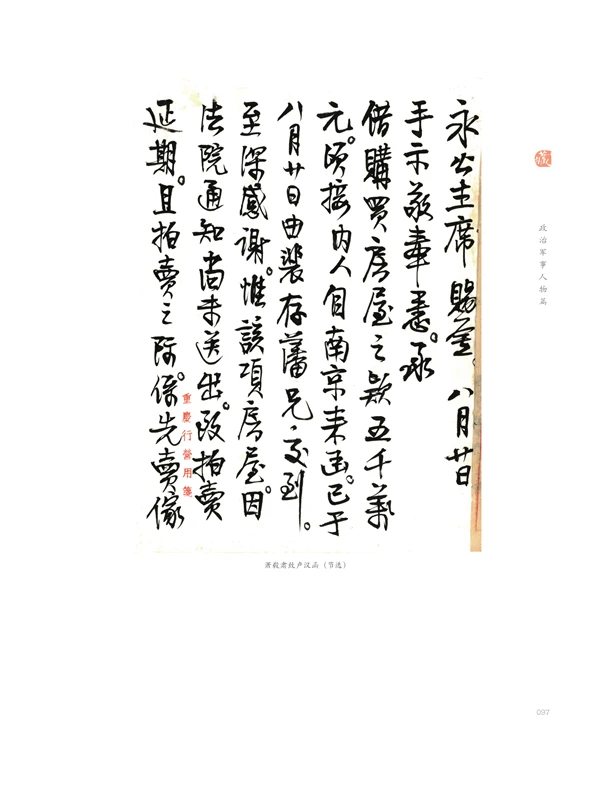 永公主席賜鑒。八月廿日
手示敬奉悉。承
借購買房屋之款五千萬
元。頃接內人自南京來函。已于
八月廿日由裴存藩兄交到。
至深感謝。惟該項房屋。因
法院通知尚未送出。致拍賣
延期。且拍賣之際。係先賣傢
重慶行營用箋
萧毅肃致卢汉函（节选）
政治军事人物篇
097